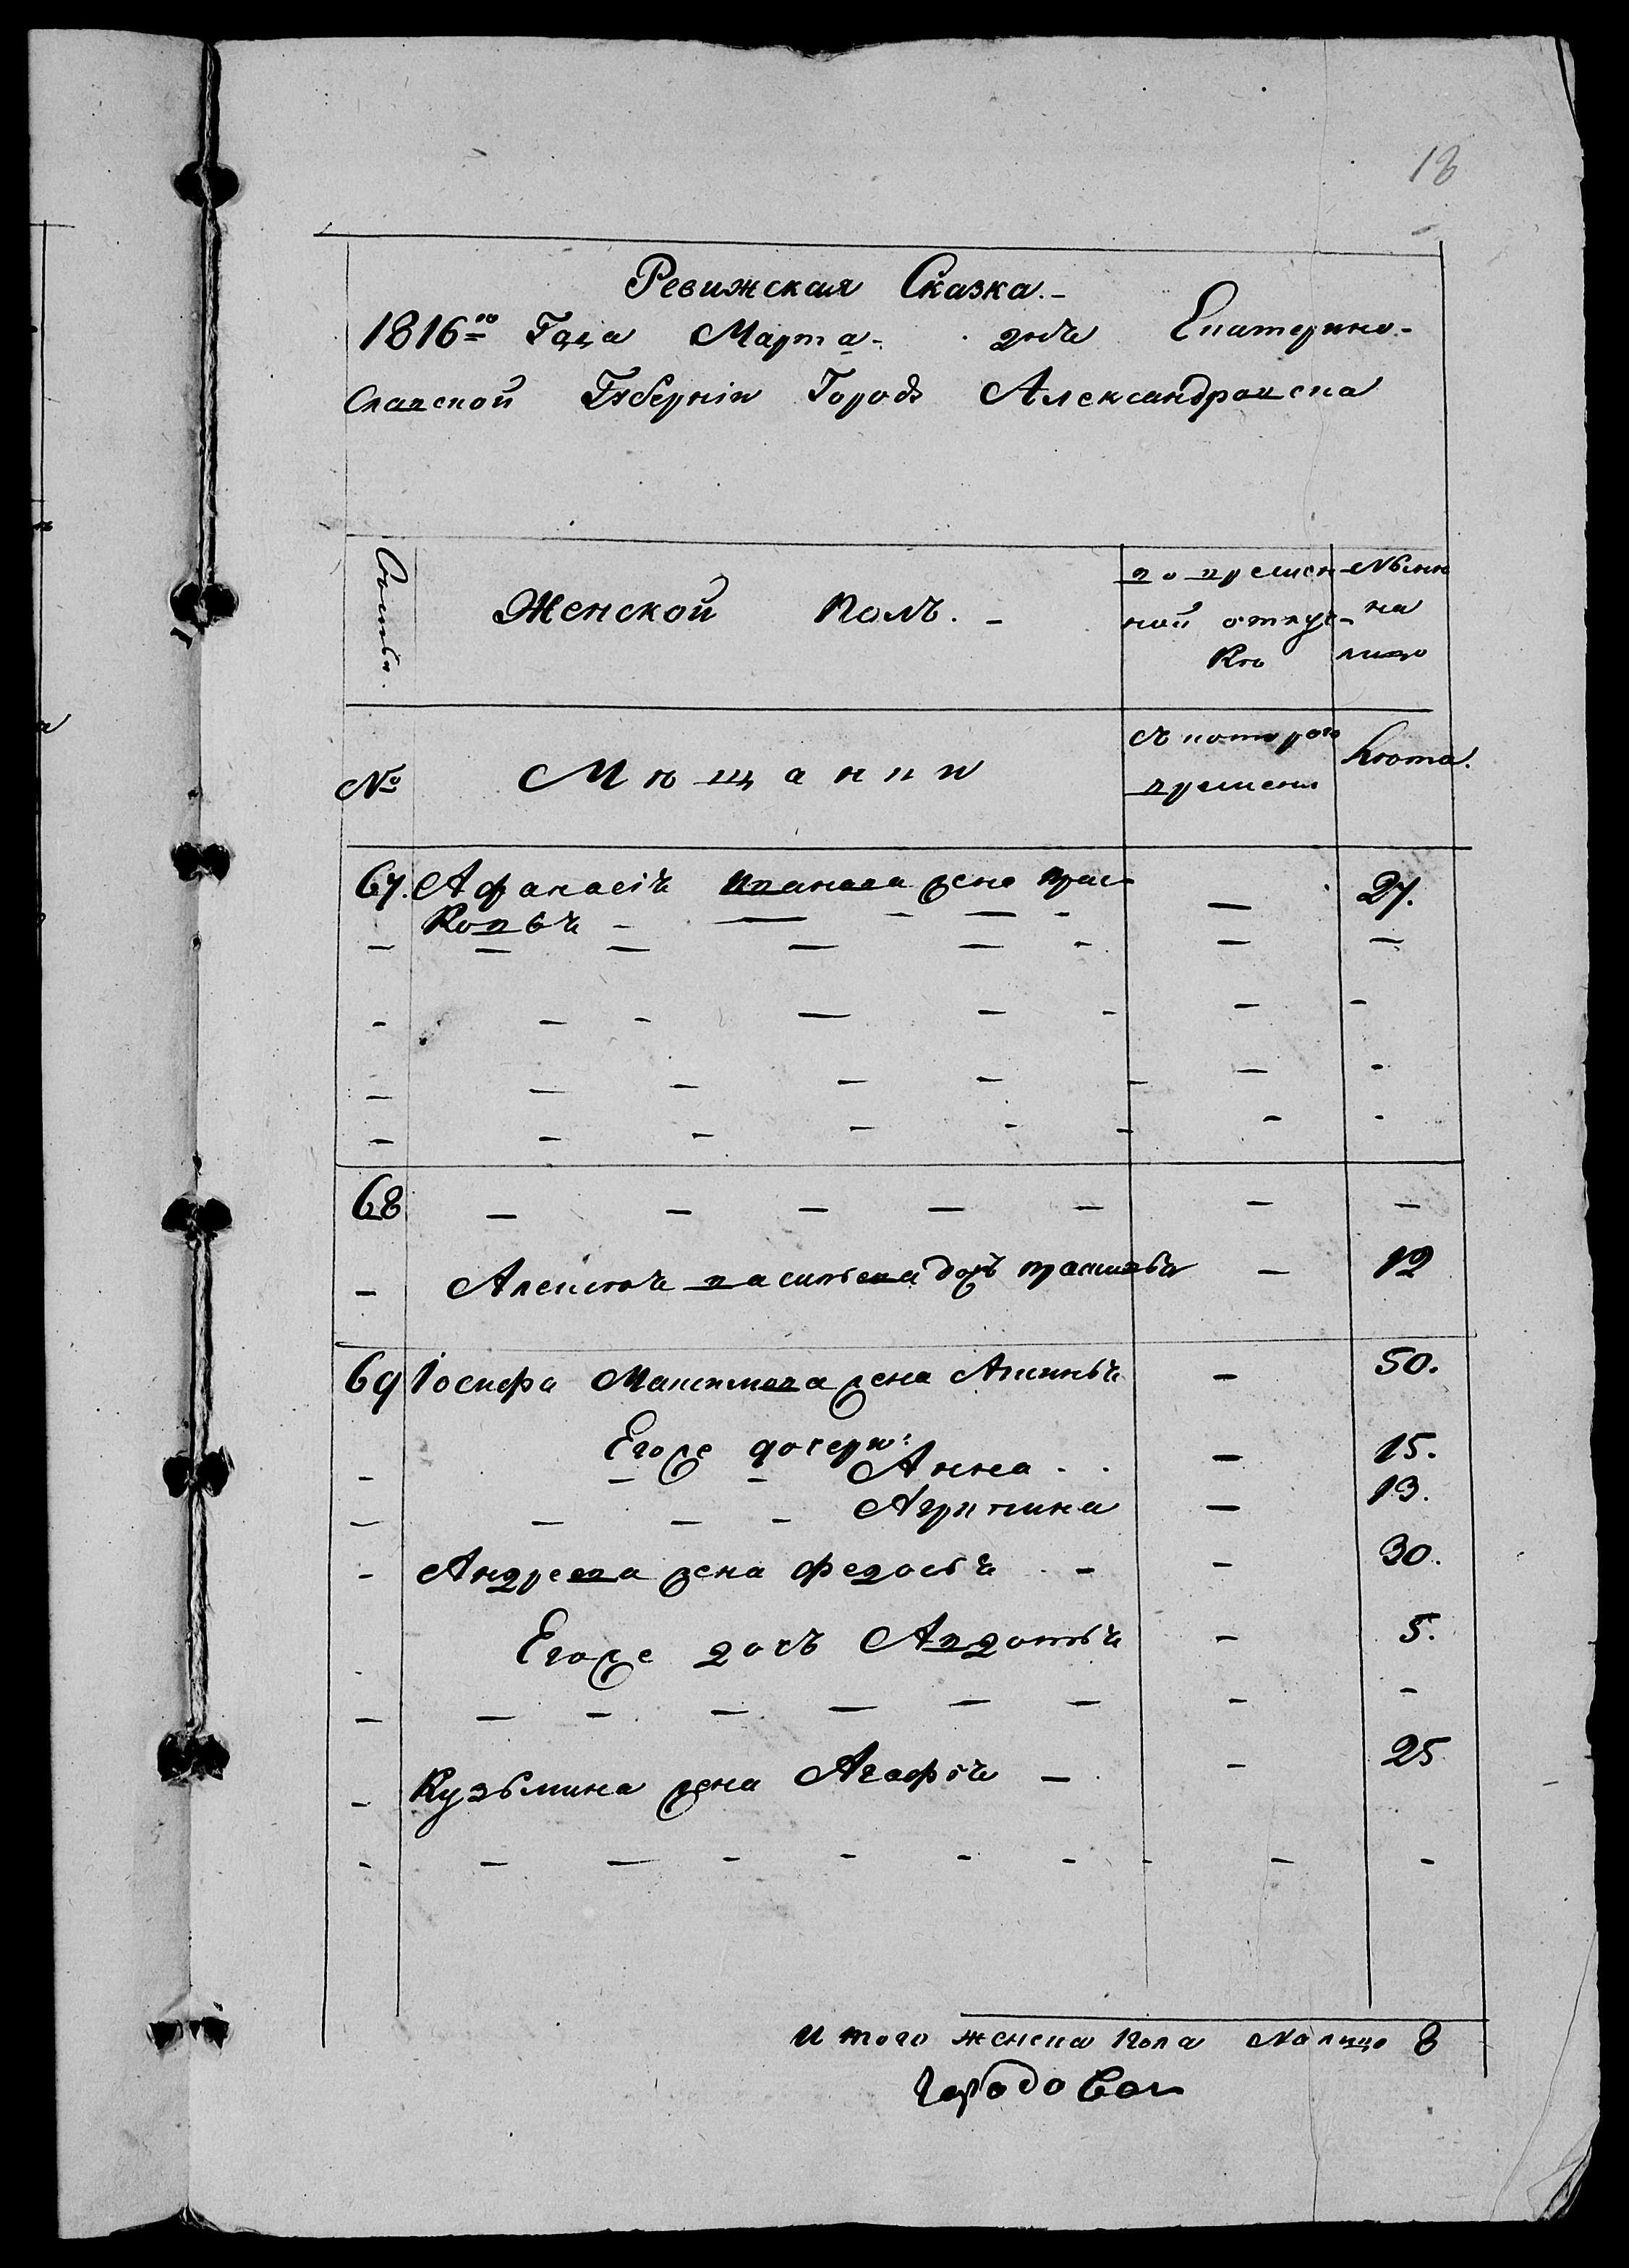 18
Ревижская Сказка.-
1816го Года Марта- дня Екатерино-
славской Губерніи Городъ Александровска
Семья.
Женской полъ. -
во времен
ной отлуч-
кѣ
Нынѣ
на
лицо
№
Мѣщанки
съ котораго
времени
лѣта.
67. Афанасія Иванова жена Прас- — 27.
ковья - — - — -
68 — — — — — — —
- Алексѣя Васильева дочь Прасковья — 12
69 Іосифа Максимова жена Аксинья - 50.
Егоже дочери:
- — - Анна . . — 15.
— — — - Агрипина — 13.
- Андреева жена Федосья - - 30.
Егоже дочь Авдотья - 5.
— — - — — — — - -
- Кузьмина жена Агафія — - 25
- — — - - - - - — -
Итого женска пола налицо 8